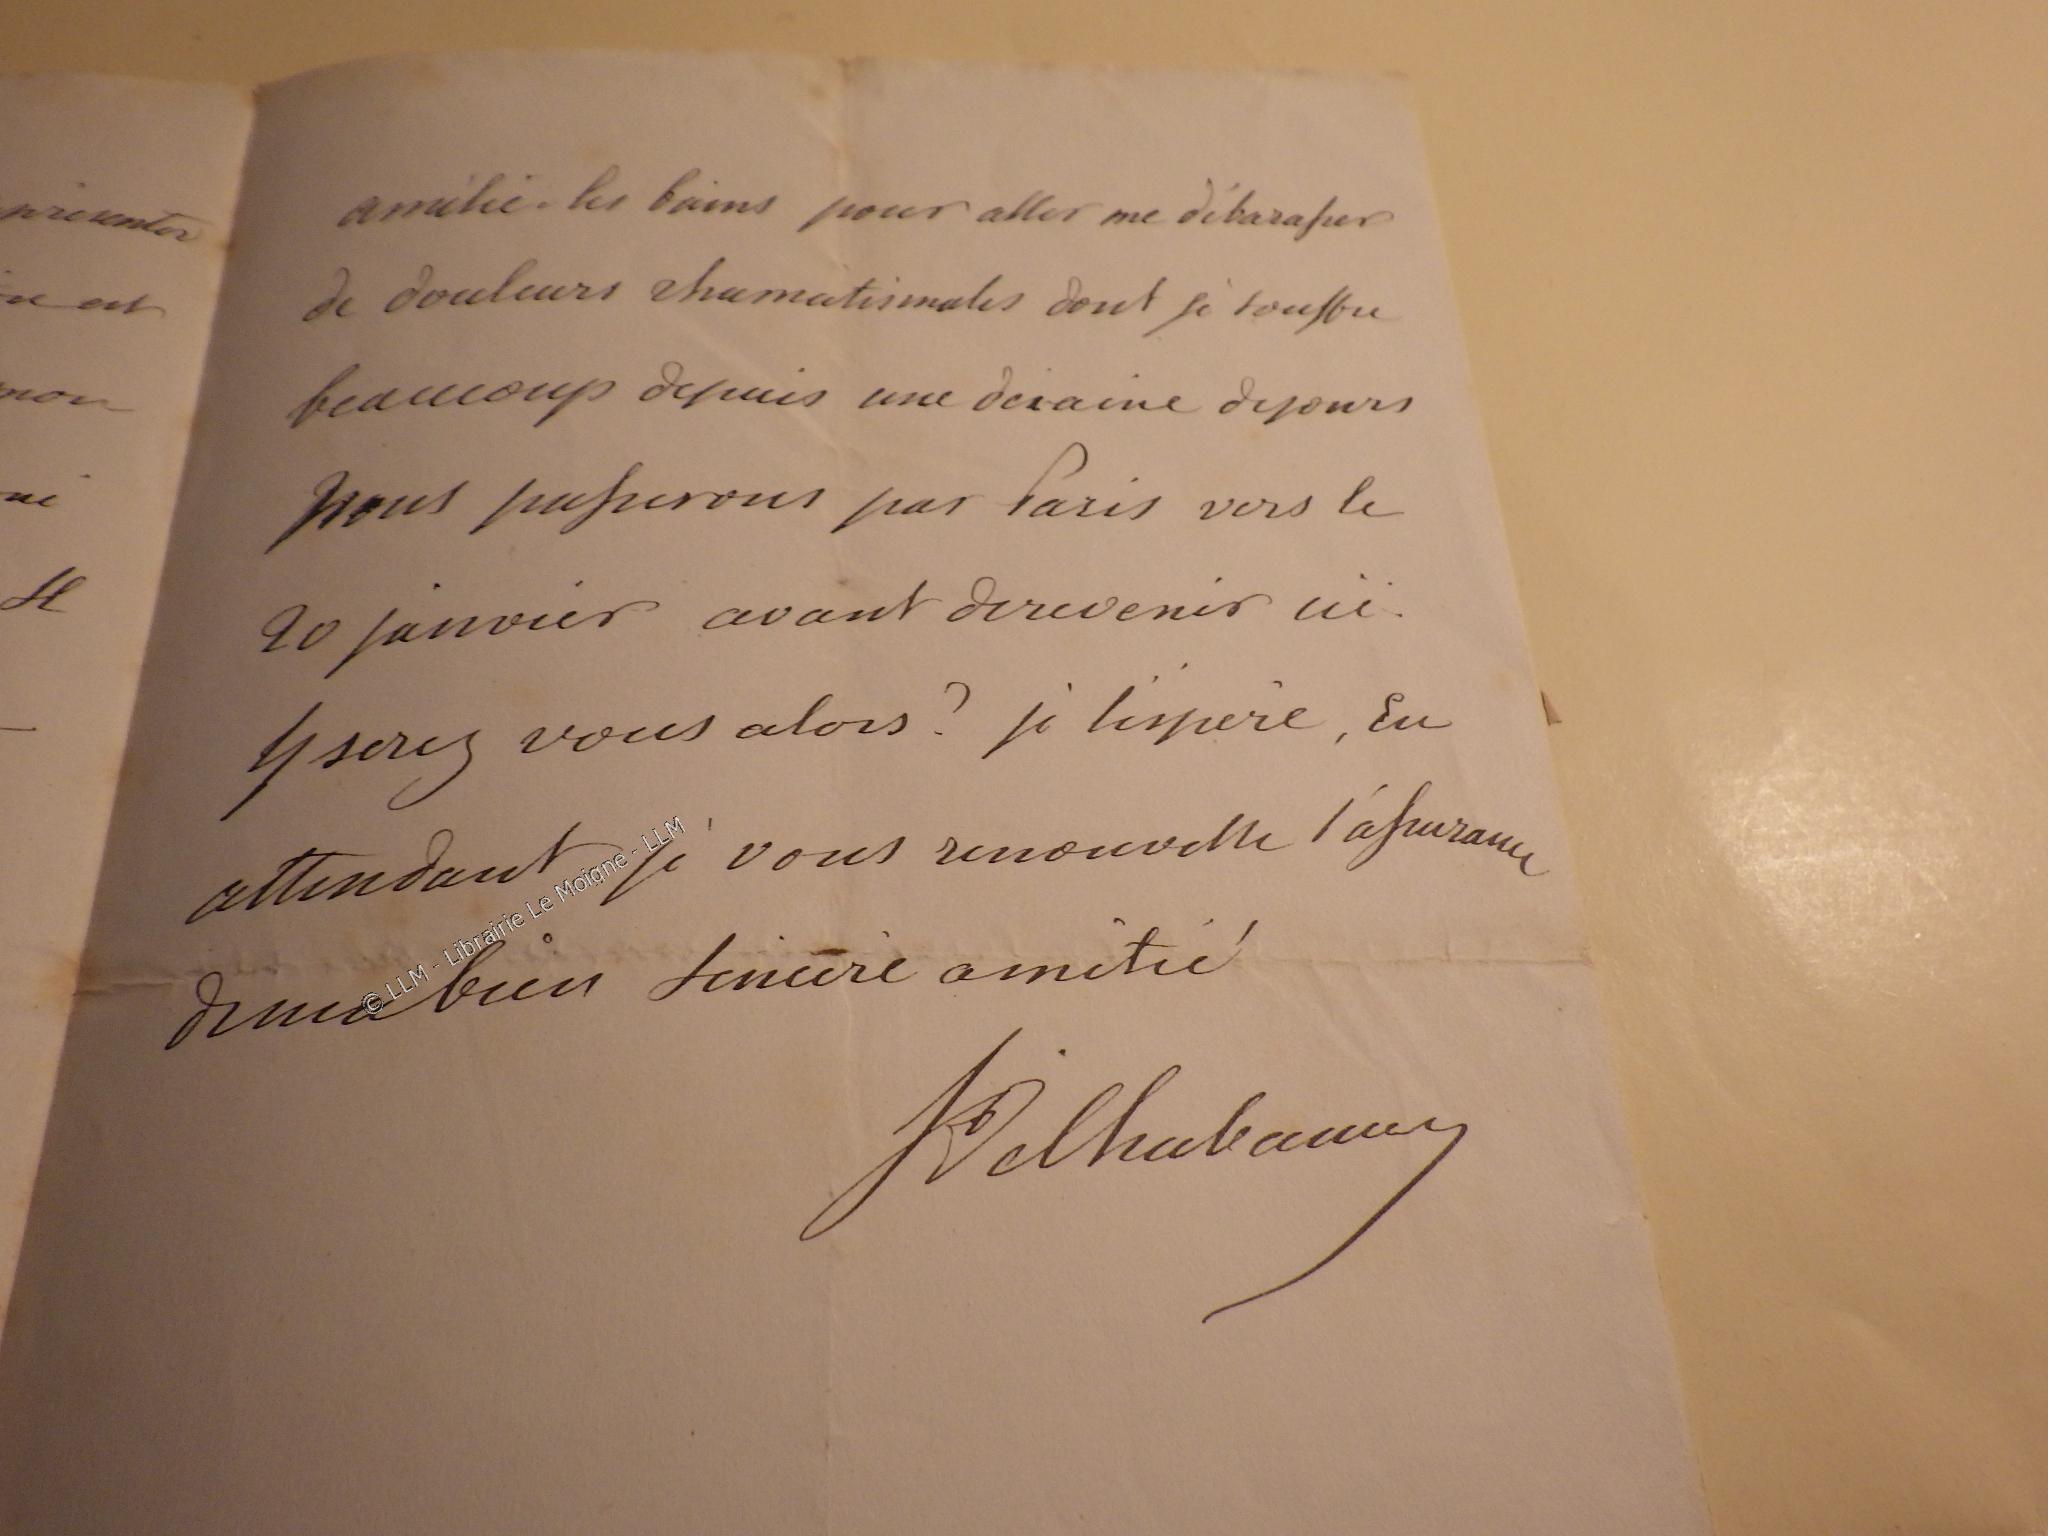 présenter
est
mon
amélie-les bains pour aller me débarasser
de douleurs rhumatismales dont je souffre
beaucoup depuis une dixaine de jours
nous passerons par Paris vers le
20 janvier avant de revenir ici.
Y serez vous alors? je l'espère, En
attendant je vous renouvelle l'assurance
de ma bien sincère amitié
© LLM - Librairie Le Moigne - LLM